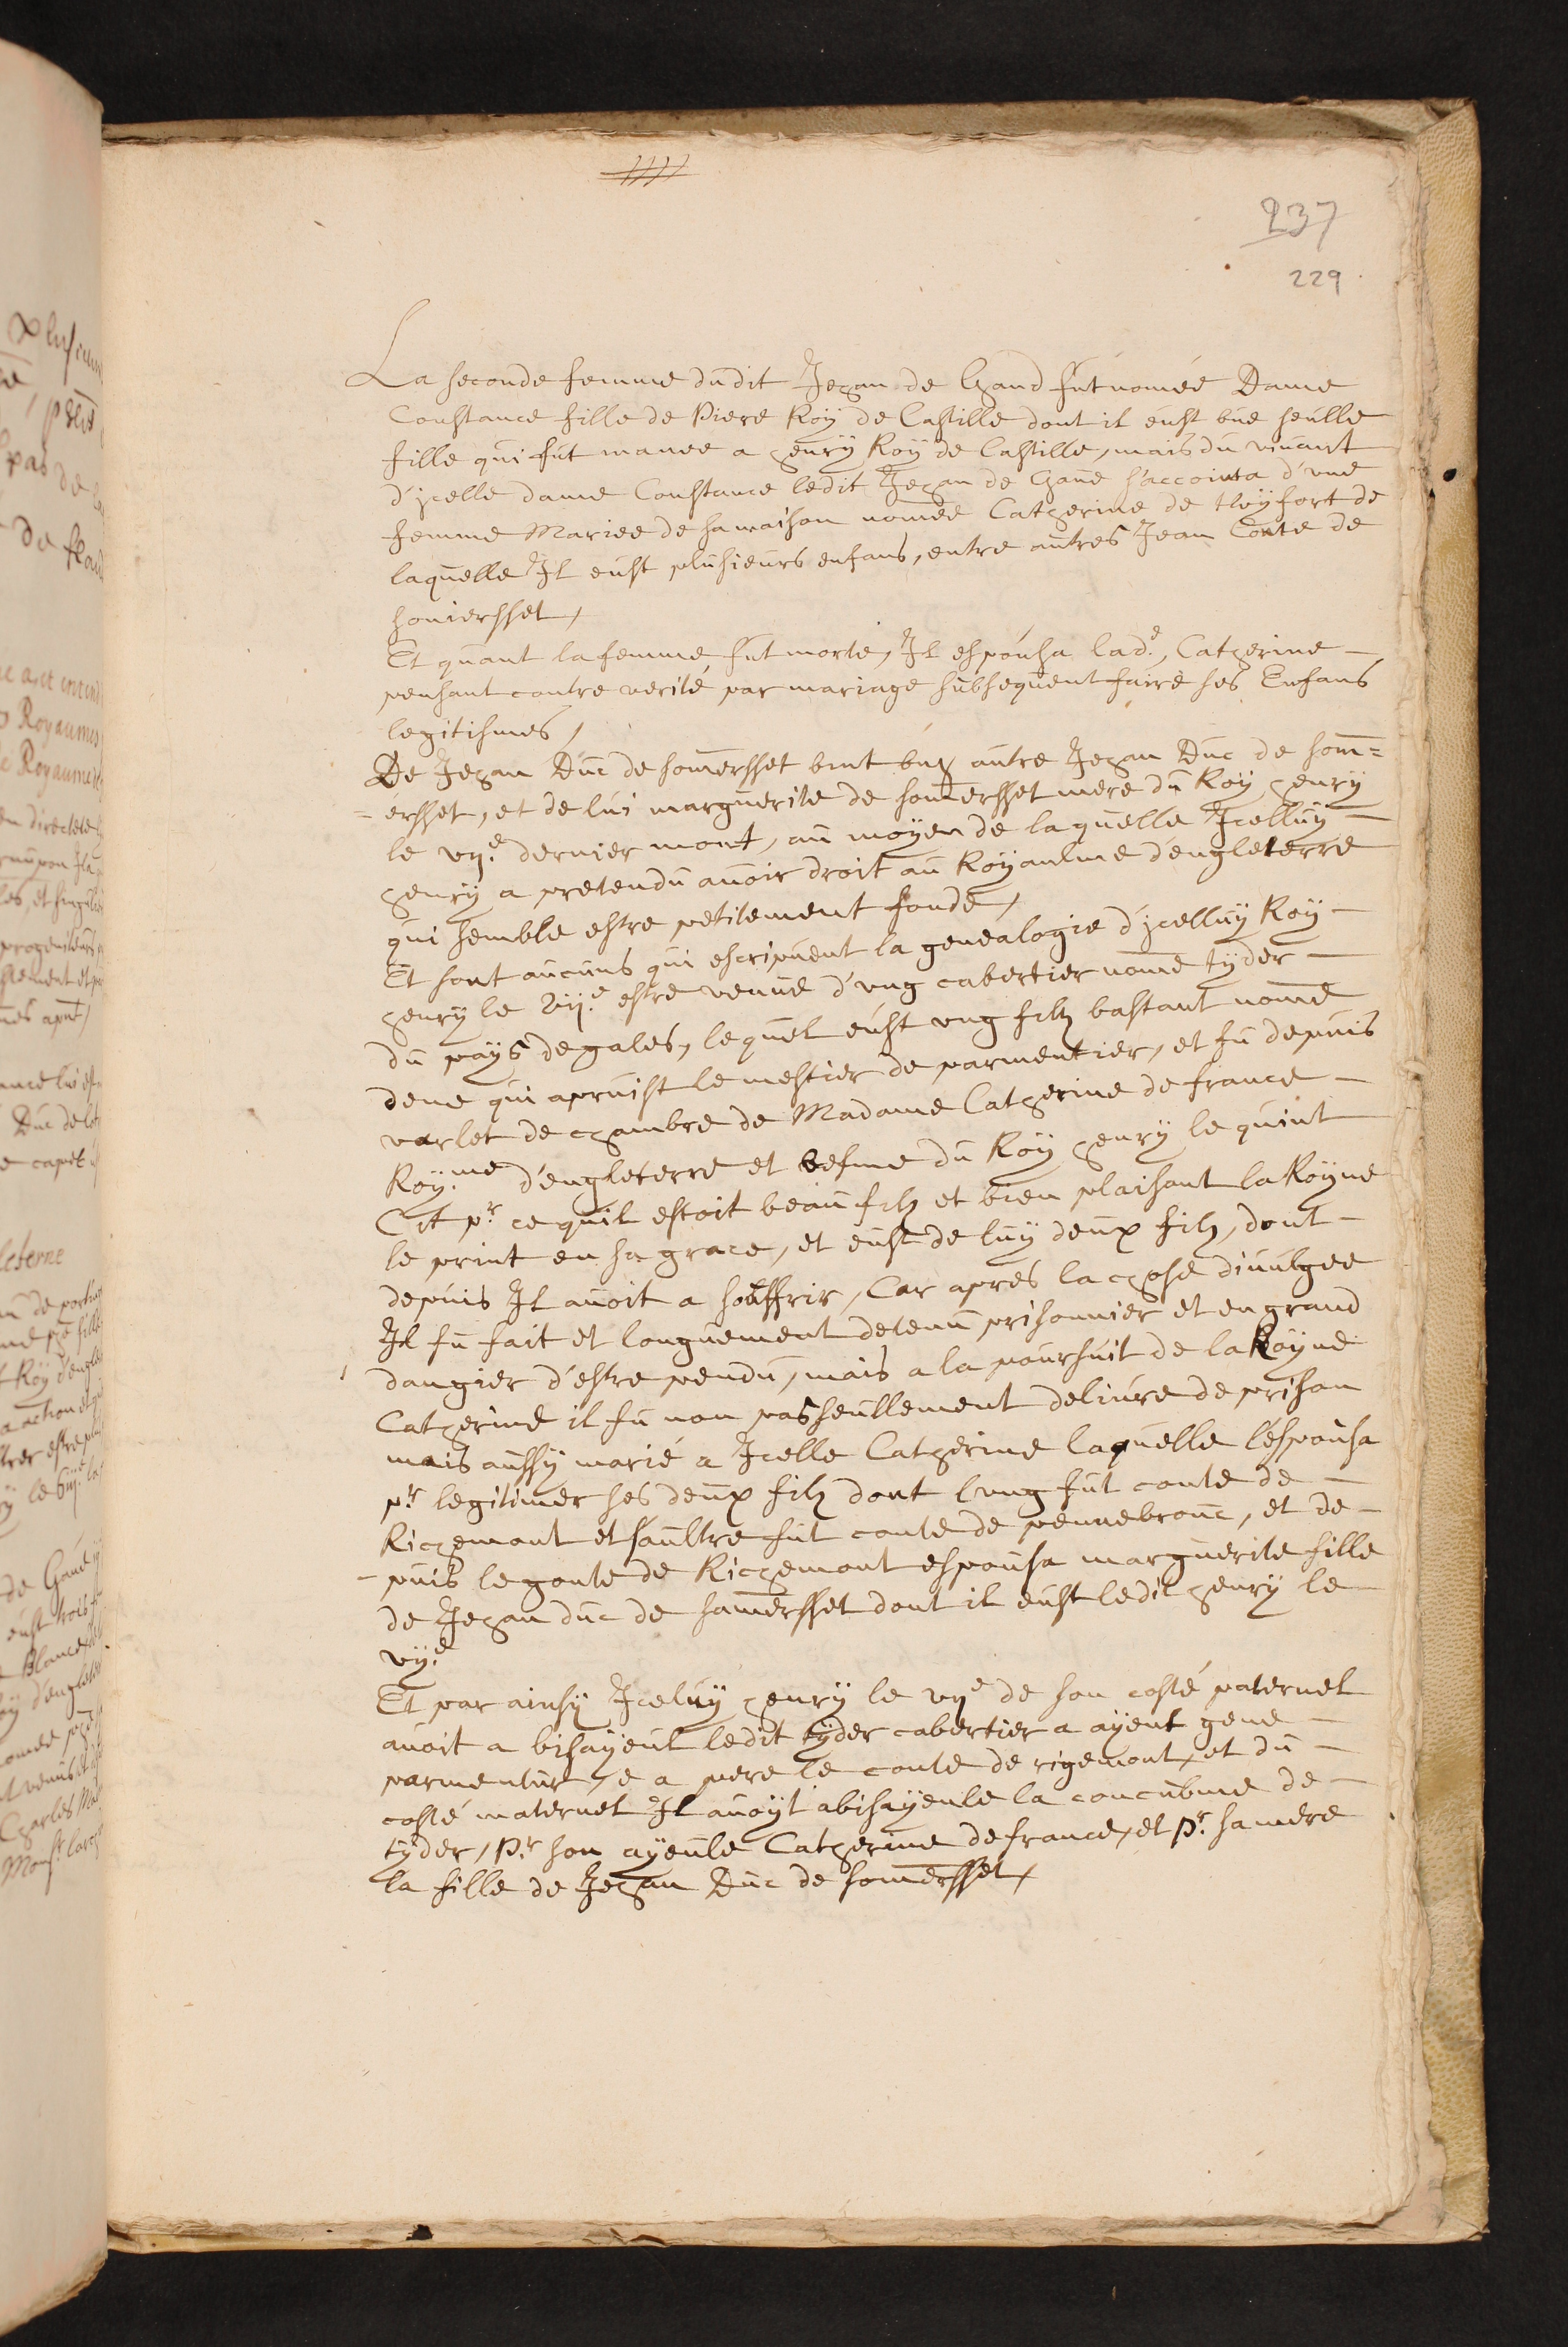 237
229
La seconde femme dudit Jehan de Gand fut nomée Dame
Constance fille de Piere Roy de Castille dont il eust une seulle
fille qui fut mariee a henry Roy de Castille, mais du vivant
d'jcelle dame Constance ledit Jehan de Gane s'accointa d'une
femme Mariee de sa maison nomée Catherine de
laquelle Il eust plusieurs enfans, entre autres Jean Conte de
sommersset,
Et quant la femme fut morte, Il espousa lad.e Catherine —
pensant contre verite par mariage subsequent faire ses Enfans
legitismes,
De Jehan Duc de somersset vint ung autre Jehan Duc de som=
=ersset, et de lui marguerite de somersset mere du Roy henry
le vij.e dernier mort, au moyen de laquelle Jcelluy —
henry a pretendu avoir droit au Royaulme d'engleterre
qui semble estre petitement fonde,
Et sont aucuns qui escripuent la genealogie d'jcelluy Roy —
henry le vij.e estre venue d'vng cabertier nome tyder —
du pays de gales, lequel eust vng filz bastant nome
dene qui aprnist le mestier de parmentier, et fu depuis
varlet de chambre de Madame Catherine de france —
Roy.me d'engleterre et vefme du Roy henry le quint
Cit p.r ce quil estoit beau filz et bien plaisant la Royne
le print en sa grace, et eust de luy deux filz, dont —
depuis Il avoit a souffrir, Car apres la chose divulgee
Il fu fait et longuement detenu prisonnier et en grand
dangier d'estre pendu, mais a la poursuit de la Royne
Catherine il fu non pas seullement delivre de prison
mais aussy marié a Jcelle Catherine laquelle l'espousa
p.r legitimer ses deux filz dont lung fut conte de —
Richemont et saultre fut conte de pennebrouc, et de-
-puis le gonte de Richemont espousa marguerite fille
de Jehan duc de somersset dont il eust ledit henry le
vij.e
Et par ainsy Jceluy henry le vije de son costé paternel
avoit a bisayeul ledit tyder cabertier a ayent gene —
parmentur, e a pere le conte de rigemont, et du —
costé maternel Il avoyt abisayeule la concubine de —
tyder, p.r son ayeule Catherine de france, et p.r sa mere
la fille de Jehan Duc de somersset,